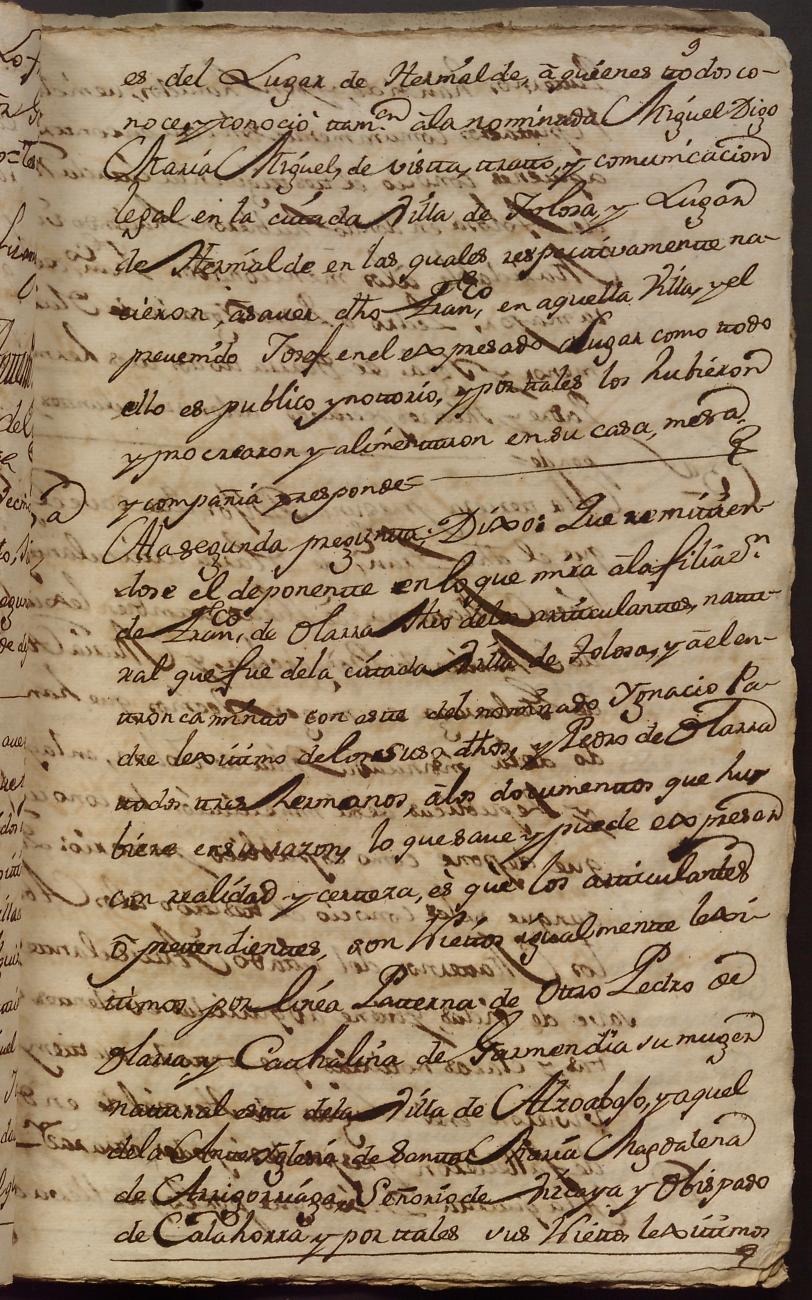 9
es del Lugar de Hernialde, à quienes ttodos co-
noce, y conociò tam.en à la nominada Miguel Digo
Maria Miguel, de vistta, tratto, y comunicacion
legal en la cittada Villa de Tolosa, y Lugar
de Hernialde en las quales respecttivamentte na-
cieron, à saver dho Fran.co en aquella Villa, y el
prevenido Josef en el expresado Lugar como ttodo
ello es publico y nottorio, y por ttales los hubieron
y procrearon y alimenttaron en su casa, mesa,
y compañia y responde
A la segunda pregunta: Dixo: Que remitien-
dose el deponentte en lo que mira à la filiaz.n
de Fran.co de Olarra Thio de los artticulanttes, nattu-
ral que fue de la cittada Villa de Tolosa, y à el en-
ttroncamientto con estte del nominado Ygnacio Pa-
dre lexittimo de los susodhos, y Pedro de Olarra
ttodos ttres hermanos, à los documenttos que hu-
biere en su razon, lo que save y puede expresar
con realidad y certteza, es que los artticulanttes
ò prettendienttes, son Niettos igualmentte lexi-
ttimos por linea Patterna de Ottro Pedro de
Olarra y Cathalina de Garmendia su muger
nattural estta de la Villa de Alzo abajo, y aquel
de la Antteiglesia de Santta Maria Magdalena
de Arrigorriaga, Señorio de Vizcaya y Obispado
de Calahorra y por ttales sus Niettos lexittimos